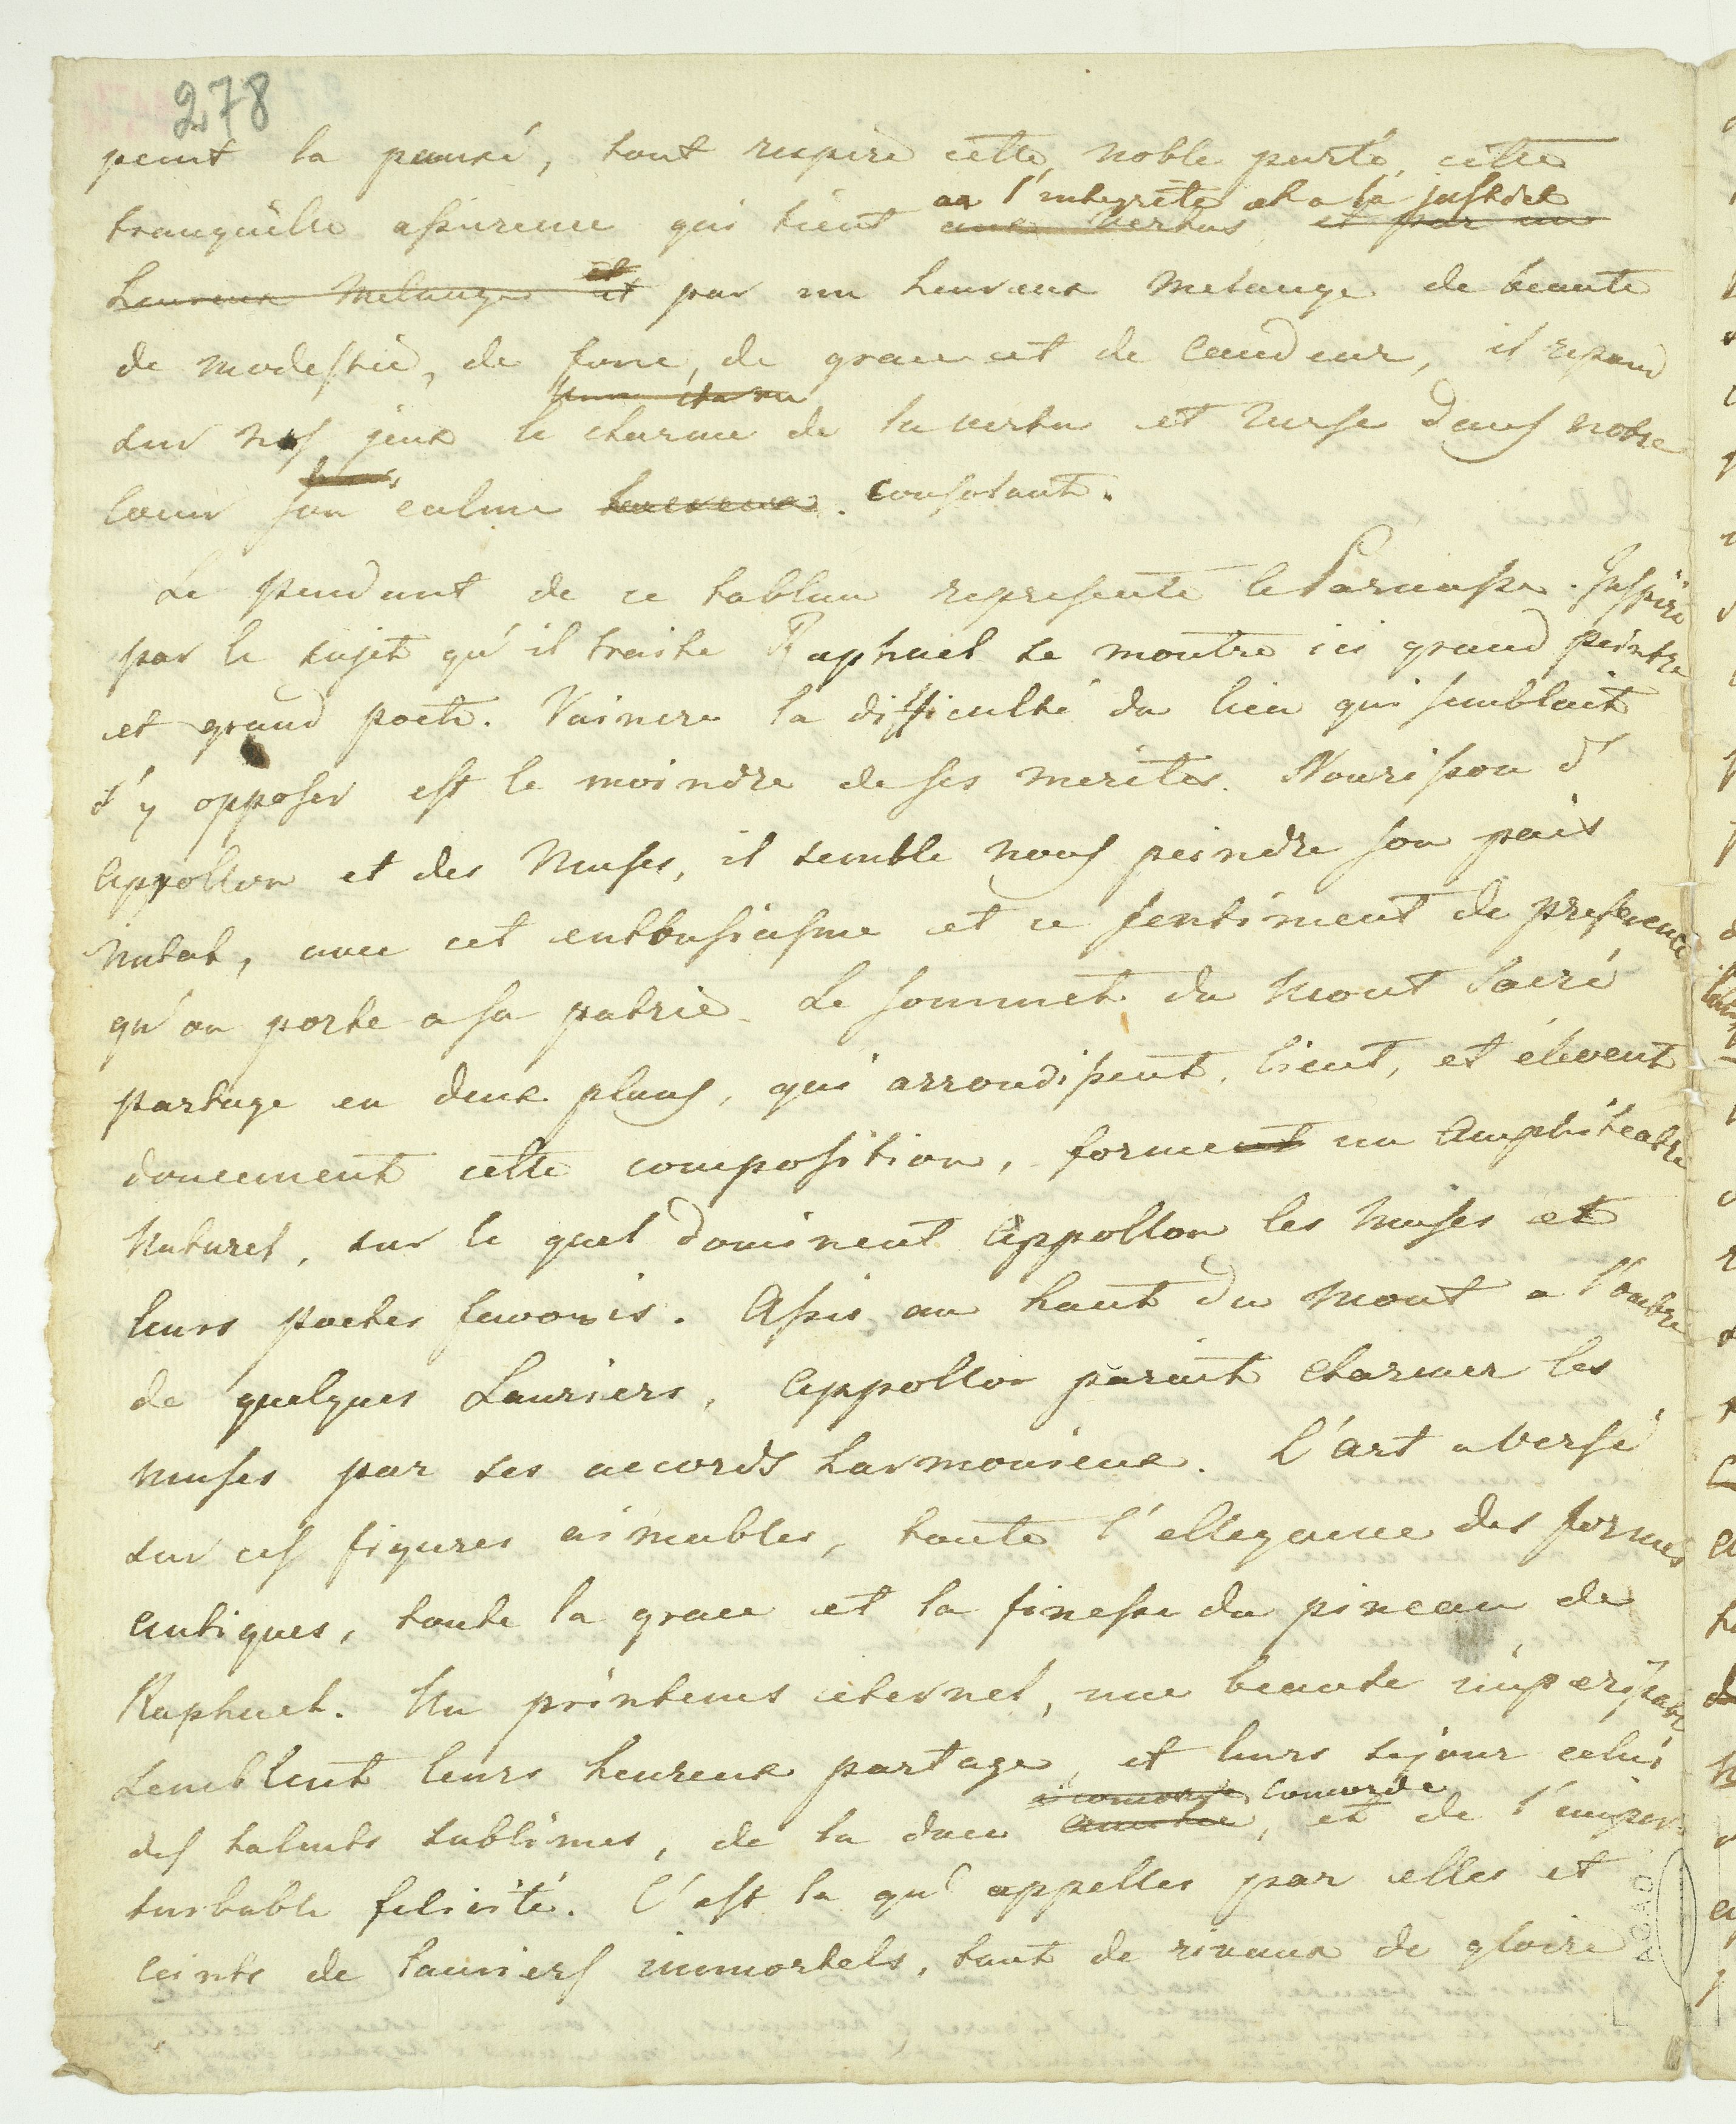 278
peint la pensé, tout respire cette noble pureté, cette
au l'integrité et a la justice
tranquille assurence qui tient aux vertus, et par un
et
heureux melange et par un heureux melange de beauté
de modestie, de force, de grace et de candeur, il repand
sur nos jeux le charme de la vertu et verse dans notre
coeur son calme heureux. consolant.
Le pendant de ce tableau represente le Parnasse. Inspiré
par le sujet qu'il traite Raphael se montre ici grand peintre
et grand poete. Vaincre la difficulté du lieu qui semblait
s'y opposer est le moindre de ses merites. Nourisson d'
Appollon et des Muses, il semble nous peindre son pais
natal, avec cet enthusiasme et ce sentiment de preference
qu'on porte a sa patrie. Le sommet du Mont Sacré
partage en deux plans, qui arrondissent, lient, et élevent
doucement cette composition, forment un Amphiteatre
Naturel, sur le quel dominent Appollon les Muses et
leurs poetes favoris. Assis au haut du Mont a l'ombre
de quelques Lauriers, Appollon parait charmer les
Muses par ses accords harmonieux. L'art a versé
sur ces figures aimables, toute l'ellegance des formes
antiques, toute la grace et la finesse du pinceau de
Raphael. Un printems eternel, une beauté imperissable
semblent leurs heureux partage, et leurs sejour celui
concorde
des talents sublimes, de la douce amitié, et de l'imper-
turbable felicité. C'est la qu'appelles par elles et
ceints de lauriers immortels, tant de rivaux de gloire
AGAD